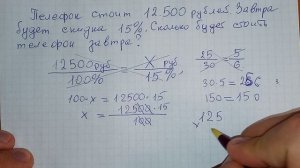 Телефон стоит 12500 рублей. Завтра
будет скидка 15%. Сколько будет стоить
телефон завтра?
12500 руб / 100% = x руб / 15%
100·x = 12500·15
x = 12500·15 / 100
25/30 = 5/6
30·5 = 25·6
150 = 150
125